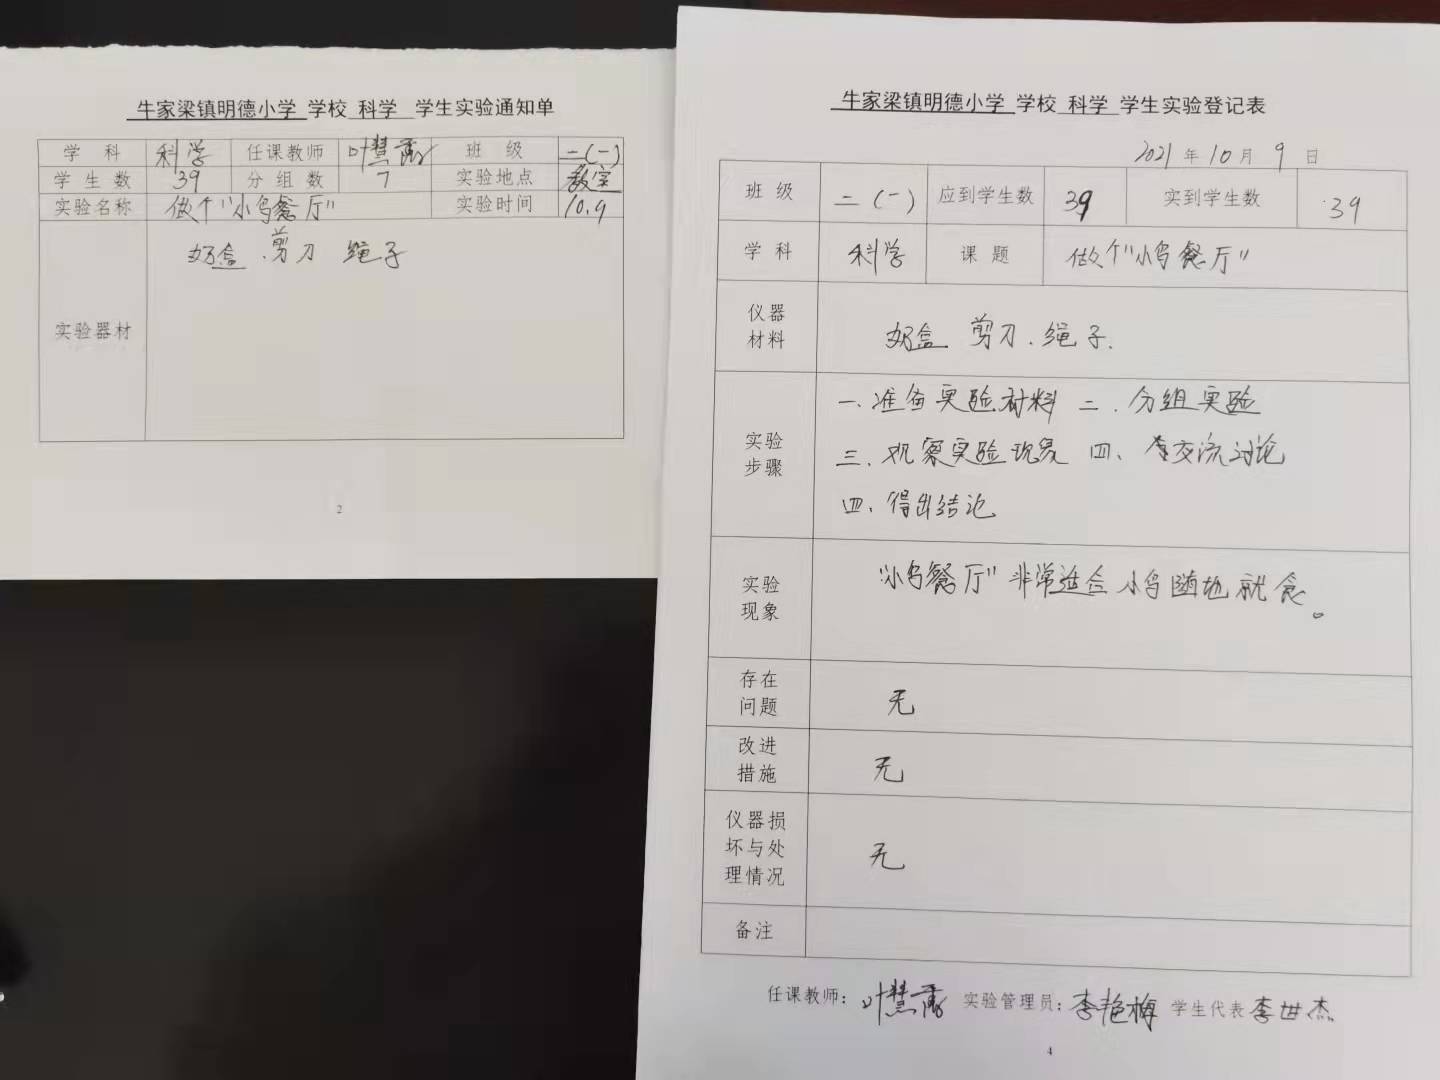 牛家梁镇明德小学 学校 科学 学生实验通知单
学 科 科学 任课教师 叶慧 班 级 二(一)
学生数 39 分组数 7 实验地点 教室
实验名称 做个"小鸟餐厅" 实验时间 10.9
实验器材 奶盒 剪刀 绳子
2
牛家梁镇明德小学 学校 科学 学生实验登记表
2021 年 10 月 9 日
班 级 二(一) 应到学生数 39 实到学生数 39
学 科 科学 课 题 做个"小鸟餐厅"
仪器材料 奶盒 剪刀.绳子.
实验步骤
一.准备实验材料 二.分组实验
三.观察实验现象 四、交流讨论
四、得出结论
实验现象 "小鸟餐厅"非常适合小鸟随地就食。
存在问题 无
改进措施 无
仪器损坏与处理情况 无
备注
任课教师:叶慧 实验管理员:李艳梅 学生代表 李世杰
4